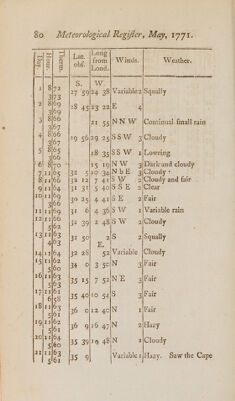 80 Meteorological Register, May, 1771.
Day. Hour. Therm. Lat. obs. Long from Lond. Winds. Weather.
S. W.
1 8 72 27 59 24 38 Variable 2 Squally
3 73
2 8 69 28 45 23 22 E 4
3 69
3 8 66 21 55 NNW Continual small rain
3 67
4 8 66 29 56 29 25 SSW 3 Cloudy
3 67
5 8 65 18 35 SSW 1 Lowring
3 66
6 8 70 15 19 NW 3 Dark and cloudy
7 11 65 10 34 NbE 3 Cloudy
8 11 66 32 12 7 41 SW 2 Cloudy and fair
9 11 64 31 31 5 40 SSE 2 Clear
10 11 30 25 4 41 SE 2 Fair
3 66
11 11 69 31 6 4 36 SW 1 Variable rain
12 11 66 31 39 2 48 SW 2 Cloudy
5 62
13 11 63 31 50 2 S 2 Squally
4 63 E.
14 11 62 32 28 52 Variable Cloudy
15 11 62 34 0 3 50 N 3 Fair
5 60
16 11 63 35 15 7 52 NE 3 Fair
5 63
17 11 61 35 40 10 54 S 3 Fair
6 58
18 11 63 36 0 12 40 N 1 Fair
5 61
19 11 62 36 9 16 47 N 2 Hazy
5 61
20 11 64 35 39 19 48 N 2 Cloudy
5 60
21 11 63 35 9 Variable 1 Hazy. Saw the Cape
5 61